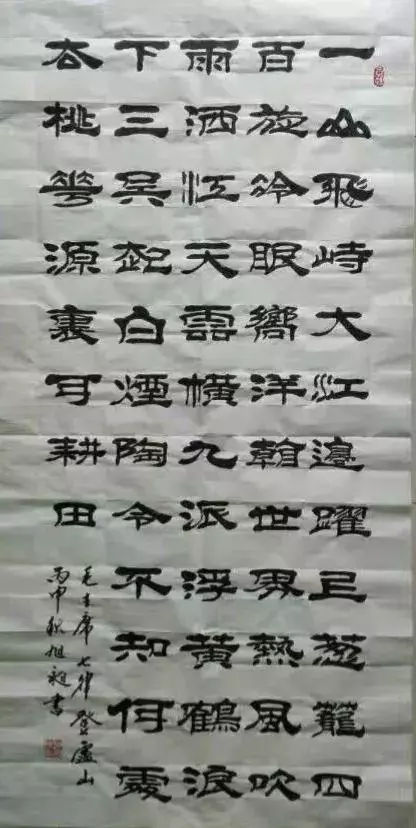 一山飛峙大江邊躍上葱籠四
百旋冷眼嚮洋看世界熱風吹
雨洒江天雲橫九派浮黃鶴浪
下三吳起白煙陶令不知何處
去桃華源裏可耕田
毛主席七律登廬山
丙申秋旭書